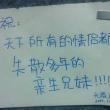 祝:
天下所有的情侣都是
失散多年的
孪生兄妹!!!!